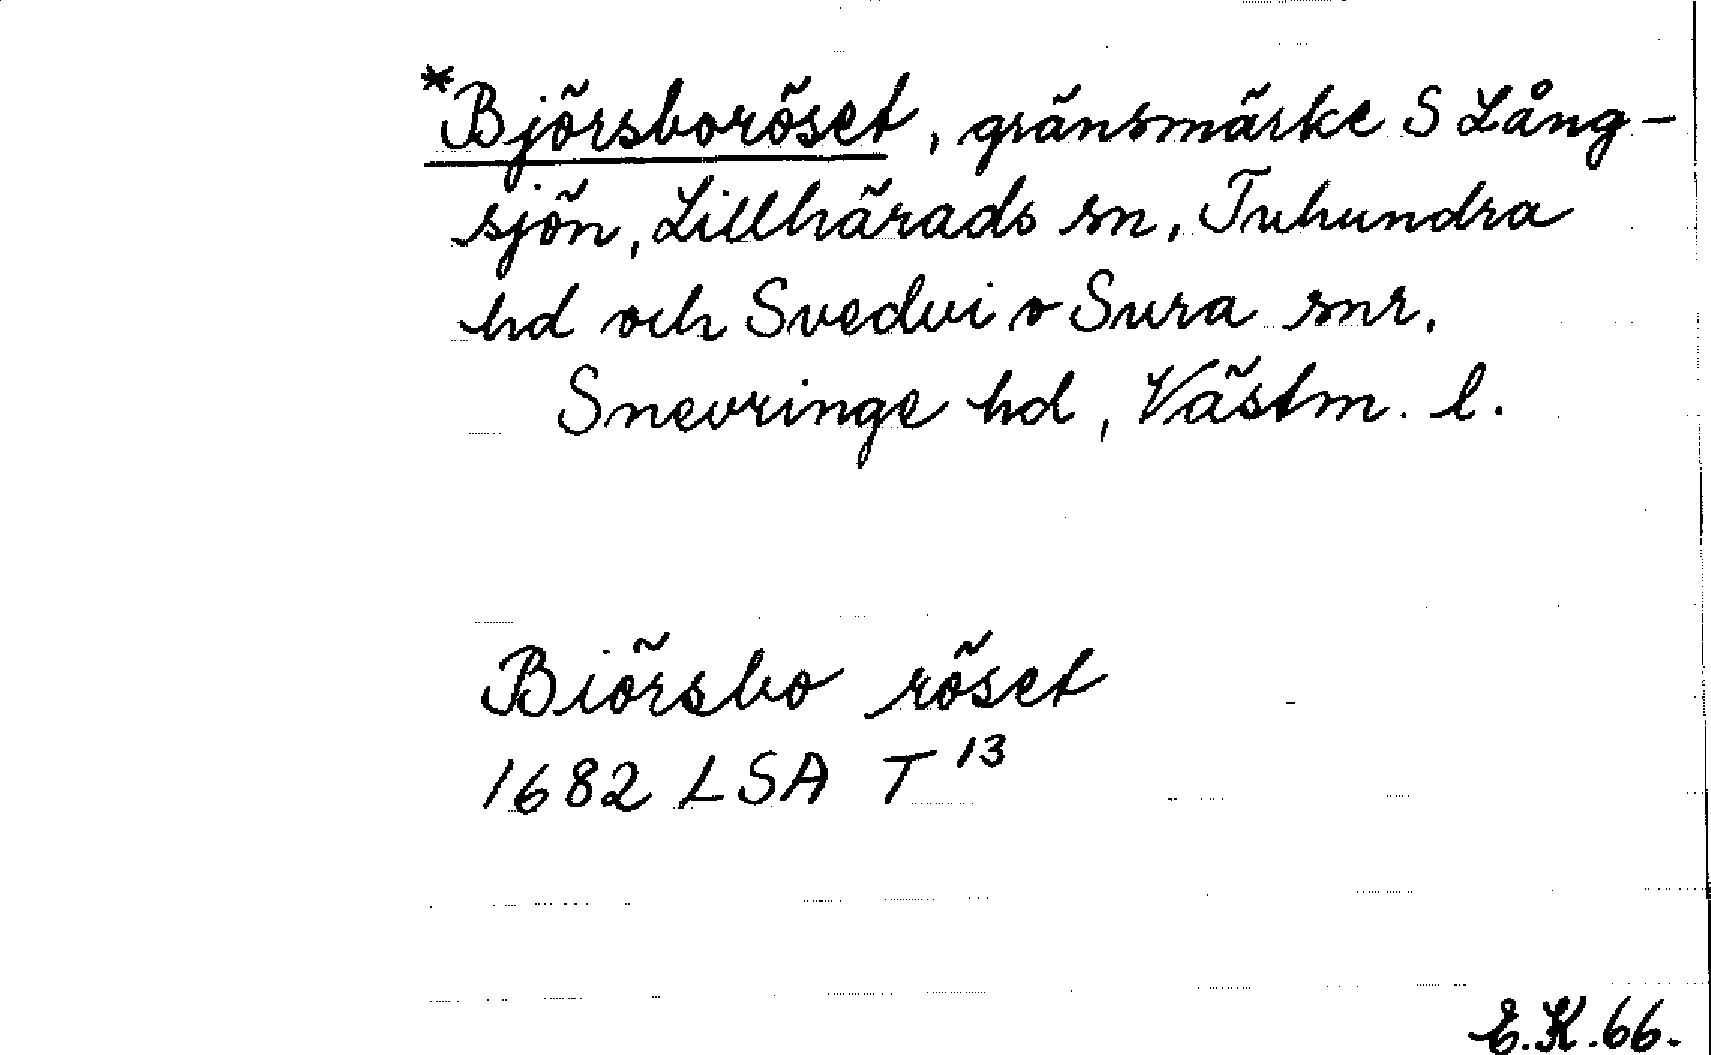 *Björsboröset, gränsmärke S Lång-
sjön, Lillhärads sn, Tuhundra
hd och Svedvi o Sura snr,
Snevringe hd, Västm. l.
Biörsbo röset
1682 LSA T 13
E.K.66.